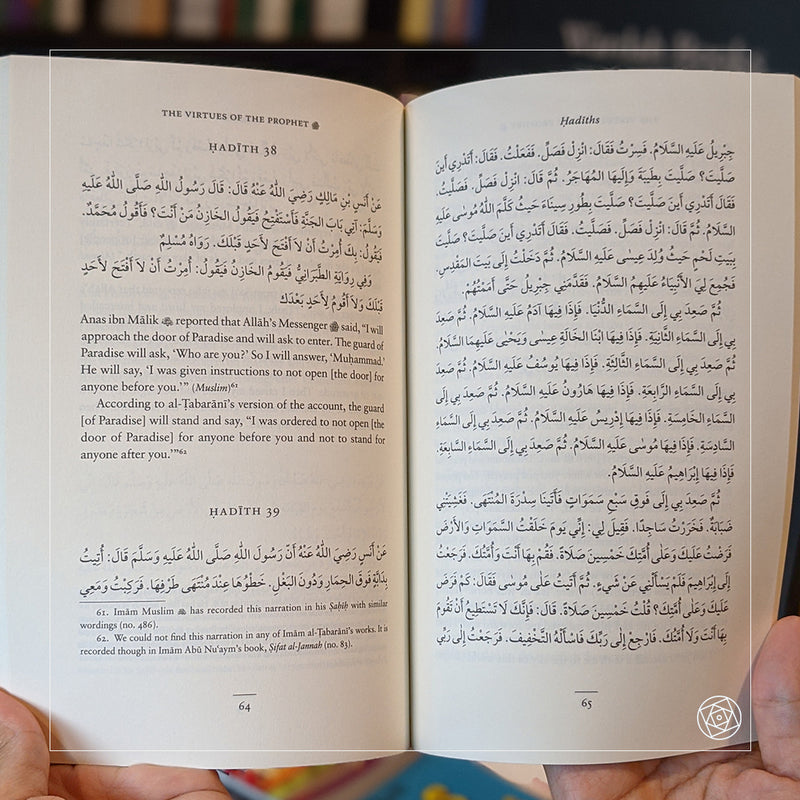 THE VIRTUES OF THE PROPHET ﷺ
ḤADĪTH 38
عَنْ أَنَسِ بْنِ مَالِكٍ رَضِيَ اللهُ عَنْهُ قَالَ: قَالَ رَسُولُ اللهِ صَلَّى اللهُ عَلَيْهِ
وَسَلَّمَ: آتِي بَابَ الجَنَّةِ فَأَسْتَفْتِحُ فَيَقُولُ الخَازِنُ مَنْ أَنْتَ؟ فَأَقُولُ مُحَمَّدٌ.
فَيَقُولُ: بِكَ أُمِرْتُ أَنْ لاَ أَفْتَحَ لأَحَدٍ قَبْلَكَ. رَوَاهُ مُسْلِمٌ
وَفِي رِوَايَةِ الطَّبَرَانِيِّ فَيَقُومُ الخَازِنُ فَيَقُولُ: أُمِرْتُ أَنْ لاَ أَفْتَحَ لأَحَدٍ
قَبْلَكَ وَلاَ أَقُومُ لِأَحَدٍ بَعْدَكَ
Anas ibn Mālik reported that Allāh's Messenger ﷺ said, “I will
approach the door of Paradise and will ask to enter. The guard of
Paradise will ask, ‘Who are you?’ So I will answer, ‘Muḥammad.’
He will say, ‘I was given instructions to not open [the door] for
anyone before you.’” (Muslim)⁶¹
According to al-Ṭabarānī's version of the account, the guard
[of Paradise] will stand and say, “I was ordered to not open [the
door of Paradise] for anyone before you and not to stand for
anyone after you.’”⁶²
ḤADĪTH 39
عَنْ أَنَسٍ رَضِيَ اللهُ عَنْهُ أَنَّ رَسُولَ اللهِ صَلَّى اللهُ عَلَيْهِ وَسَلَّمَ قَالَ: أُتِيتُ
بِدَابَّةٍ فَوْقَ الحِمَارِ وَدُونَ البَغْلِ. خَطْوُهَا عِنْدَ مُنْتَهَى طَرْفِهَا. فَرَكِبْتُ وَمَعِي
61. Imām Muslim has recorded this narration in his Ṣaḥīḥ with similar
wordings (no. 486).
62. We could not find this narration in any of Imām al-Ṭabarānī's works. It is
recorded though in Imām Abū Nu'aym's book, Ṣifat al-Jannah (no. 83).
64
Ḥadīths
جِبْرِيلُ عَلَيْهِ السَّلَامُ. فَسِرْتُ فَقَالَ: انْزِل فَصَلِّ. فَفَعَلْتُ. فَقَالَ: أَتَدْرِي أَينَ
صَلَّيتَ؟ صَلَّيتَ بِطَيبَةَ وَإِلَيهَا المُهَاجَرُ. ثُمَّ قَالَ: انْزِل فَصَلِّ. فَصَلَّيتُ.
فَقَالَ أَتَدْرِي أَينَ صَلَّيتَ؟ صَلَّيتَ بِطُورِ سِينَاءَ حَيثُ كَلَّمَ اللهُ مُوسَى عَلَيهِ
السَّلَامُ. ثُمَّ قَالَ: انْزِل فَصَلِّ. فَصَلَّيتُ. فَقَالَ أَتَدْرِي أَينَ صَلَّيتَ؟ صَلَّيتَ
بِبَيتِ لَحْمٍ حَيثُ وُلِدَ عِيسَى عَلَيهِ السَّلَامُ. ثُمَّ دَخَلْتُ إِلَى بَيتِ المَقْدِسِ.
فَجُمِعَ لِيَ الأَنْبِيَاءُ عَلَيهِمُ السَّلَامُ. فَقَدَّمَنِي جِبْرِيلُ حَتَّى أَمَمْتُهُمْ.
ثُمَّ صَعِدَ بِي إِلَى السَّمَاءِ الدُّنْيَا. فَإِذَا فِيهَا آدَمُ عَلَيهِ السَّلَامُ. ثُمَّ صَعِدَ
بِي إِلَى السَّمَاءِ الثَّانِيَةِ. فَإِذَا فِيهَا ابْنَا الخَالَةِ عِيسَى وَيَحْيَى عَلَيهِمَا السَّلَامُ.
ثُمَّ صَعِدَ بِي إِلَى السَّمَاءِ الثَّالِثَةِ. فَإِذَا فِيهَا يُوسُفُ عَلَيهِ السَّلَامُ. ثُمَّ صَعِدَ
بِي إِلَى السَّمَاءِ الرَّابِعَةِ. فَإِذَا فِيهَا هَارُونُ عَلَيهِ السَّلَامُ. ثُمَّ صَعِدَ بِي إِلَى
السَّمَاءِ الخَامِسَةِ. فَإِذَا فِيهَا إِدْرِيسُ عَلَيهِ السَّلَامُ. ثُمَّ صَعِدَ بِي إِلَى السَّمَاءِ
السَّادِسَةِ. فَإِذَا فِيهَا مُوسَى عَلَيهِ السَّلَامُ. ثُمَّ صَعِدَ بِي إِلَى السَّمَاءِ السَّابِعَةِ.
فَإِذَا فِيهَا إِبْرَاهِيمُ عَلَيهِ السَّلَامُ.
ثُمَّ صَعِدَ بِي إِلَى فَوقِ سَبْعِ سَمَوَاتٍ فَأَتَينَا سِدْرَةَ المُنْتَهَى. فَغَشِيَتْنِي
ضَبَابَةٌ. فَخَرَرْتُ سَاجِدًا. فَقِيلَ لِي: إِنِّي يَومَ خَلَقْتُ السَّمَوَاتِ وَالأَرْضَ
فَرَضْتُ عَلَيكَ وَعَلَى أُمَّتِكَ خَمْسِينَ صَلَاةً. فَقُمْ بِهَا أَنْتَ وَأُمَّتُكَ. فَرَجَعْتُ
إِلَى إِبْرَاهِيمَ فَلَمْ يَسْأَلْنِي عَنْ شَيءٍ. ثُمَّ أَتَيتُ عَلَى مُوسَى فَقَالَ: كَمْ فَرَضَ
عَلَيكَ وَعَلَى أُمَّتِكَ؟ قُلْتُ خَمْسِينَ صَلَاةً. قَالَ: فَإِنَّكَ لَا تَسْتَطِيعُ أَنْ تَقُومَ
بِهَا أَنْتَ وَلَا أُمَّتُكَ. فَارْجِعْ إِلَى رَبِّكَ فَاسْأَلْهُ التَّخْفِيفَ. فَرَجَعْتُ إِلَى رَبِّي
65